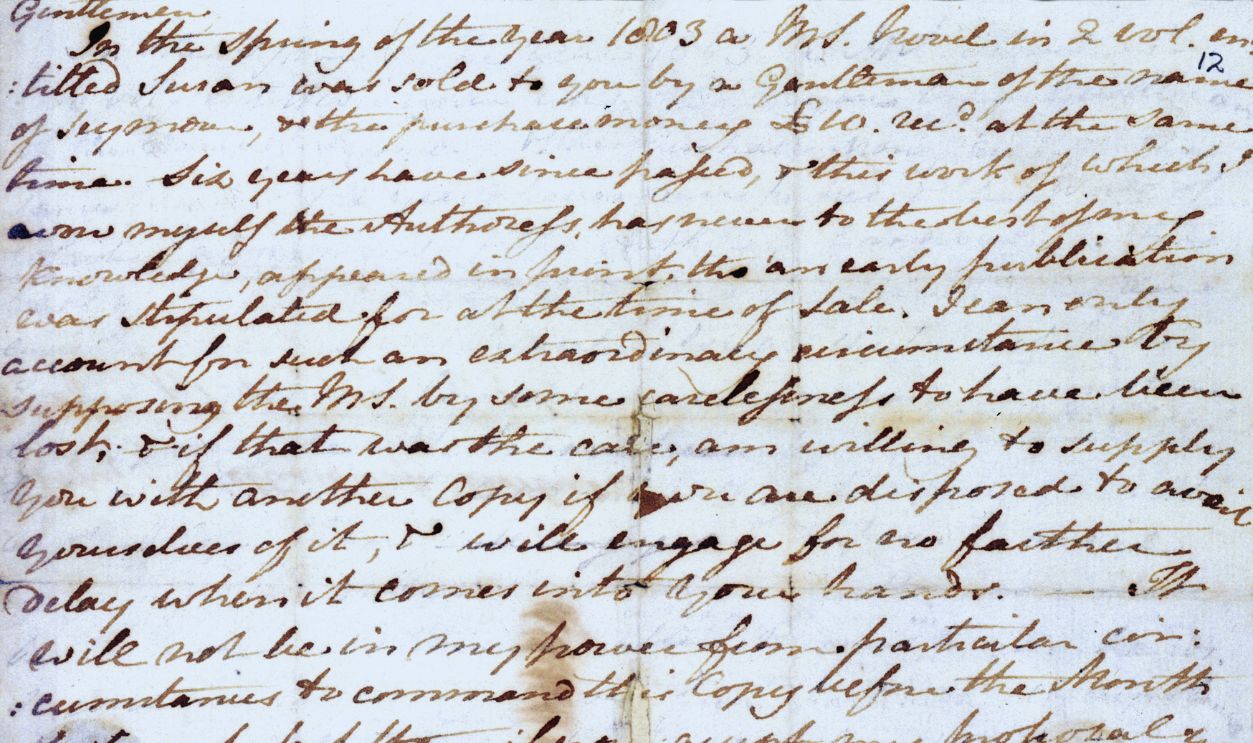 Gentlemen
In the Spring of the year 1803 a MS. Novel in 2 vol. en:
12
:titled Susan was sold to you by a Gentleman of the name
of Seymour, & the purchase money £10. recd. at the same
time. Six years have since passed, & this work of which I
am myself the Authoress, has never to the best of my
knowledge, appeared in print, tho' an early publication
was stipulated for at the time of Sale. I can only
account for such an extraordinary circumstance by
supposing the MS. by some carelessness to have been
lost; & if that was the case, am willing to supply
you with another Copy if you are disposed to avail
yourselves of it, & will engage for no farther
delay when it comes into your hands. — It
will not be in my power from particular cir:
:cumstances to command this Copy before the Month
accept my proposal &